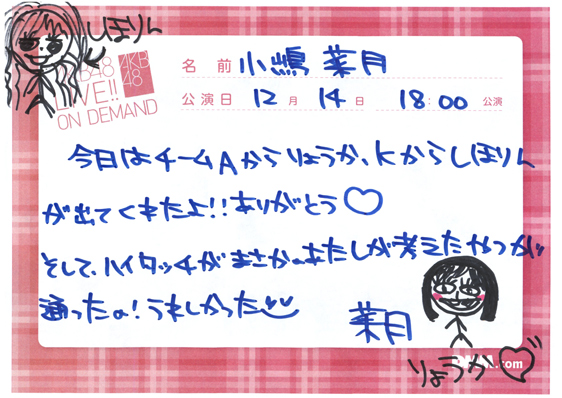 しほりん
AKB48
LIVE!!
ON DEMAND
AKB
48
名 前 小嶋 菜月
公演日 12 月 14 日 18:00 公演
今日はチームAからりょうか、Kからしほりん
が出てくれたよ!!ありがとう♡
そして、ハイタッチがまさかのあたしが考えたやつが
通ったの!うれしかった
菜月
.com
りょうか♡